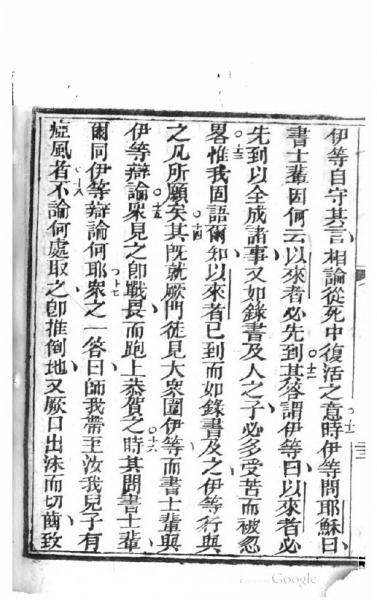 伊等自守其言、相論從死中復活之意時伊等問耶穌曰、
書士輩因何云以來者必先到其答謂伊等曰以來者必
先到以全成諸事又如錄書及人之子必多受苦而被忽
畧惟我固語爾知以來者已到而如錄書及之伊等行與
之凡所願矣其旣就厥門徒見大衆圍伊等而書士輩與
伊等辯論衆見之卽戰長而跑上恭賀之時其問書士輩
爾同伊等辯論何耶衆之一答曰師我帶至汝我兒子有
瘂風者不論何處取之卽推倒地又厥口出沫而切齒致
十一
十二
十三
十四
十五
十六
十七
十八
Google